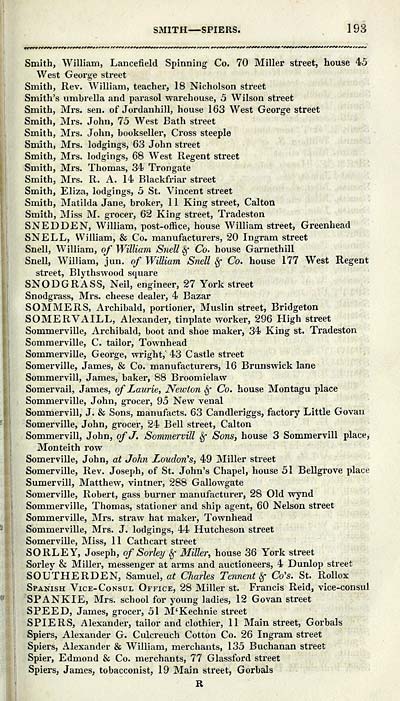 SMITH—SPIERS. 193
Smith, William, Lancefield Spinning Co. 70 Miller street, house 45
West George street
Smith, Rev. William, teacher, 18 Nicholson street
Smith's umbrella and parasol warehouse, 5 Wilson street
Smith, Mrs. sen. of Jordanhill, house 163 West George street
Smith, Mrs. John, 75 West Bath street
Smith, Mrs. John, bookseller, Cross steeple
Smith, Mrs. lodgings, 63 John street
Smith, Mrs. lodgings, 68 West Regent street
Smith, Mrs. Thomas, 34 Trongate
Smith, Mrs. R. A. 14 Blackfriar street
Smith, Eliza, lodgings, 5 St. Vincent street
Smith, Matilda Jane, broker, 11 King street, Calton
Smith, Miss M. grocer, 62 King street, Tradeston
SNEDDEN, William, post-office, house William street, Greenhead
SNELL, William, & Co. manufacturers, 20 Ingram street
Snell, William, of William Snell & Co. house Garnethill
Snell, William, jun. of William Snell & Co. house 177 West Regent
street, Blythswood square
SNODGRASS, Neil, engineer, 27 York street
Snodgrass, Mrs. cheese dealer, 4 Bazar
SOMMERS, Archibald, portioner, Muslin street, Bridgeton
SOMERVAILL, Alexander, tinplate worker, 296 High street
Sommerville, Archibald, boot and shoe maker, 34 King st. Tradeston
Sommerville, C. tailor, Townhead
Sommerville, George, wright, 43 Castle street
Somerville, James, & Co. manufacturers, 16 Brunswick lane
Sommervill, James, baker, 88 Broomielaw
Somervail, James, of Laurie, Newton & Co. house Montagu place
Sommerville, John, grocer, 95 New venal
Sommervill, J. & Sons, manufacts. 63 Candleriggs, factory Little Govan
Somerville, John, grocer, 24 Bell street, Calton
Sommervill, John, of J. Sommervill & Sons, house 3 Sommervill place,
Monteith row
Somerville, John, at John Loudon's, 49 Miller street
Somerville, Rev. Joseph, of St. John's Chapel, house 51 Bellgrove place
Sumervill, Matthew, vintner, 288 Gallowgate
Somerville, Robert, gass burner manufacturer, 28 Old wynd
Sommerville, Thomas, stationer and ship agent, 60 Nelson street
Sommerville, Mrs. straw hat maker, Townhead
Sommerville, Mrs. J. lodgings, 44 Hutcheson street
Somerville, Miss, 11 Cathcart street
SORLEY, Joseph, of Sorley & Miller, house 36 York street
Sorley & Miller, messenger at arms and auctioneers, 4 Dunlop street
SOUTHERDEN, Samuel, at Charles Tennent & Co's. St. Rollox
SPANISH VICE-CONSUL OFFICE, 28 Miller st. Francis Reid, vice-consul
SPANKIE, Mrs. school for young ladies, 12 Govan street
SPEED, James, grocer, 51 M'Kechnie street
SPIERS, Alexander, tailor and clothier, 11 Main street, Gorbals
Spiers, Alexander G. Culcreuch Cotton Co. 26 Ingram street
Spiers, Alexander & William, merchants, 135 Buchanan street
Spier, Edmond & Co. merchants, 77 Glassford street
Spiers, James, tobacconist, 19 Main street, Gorbals
R